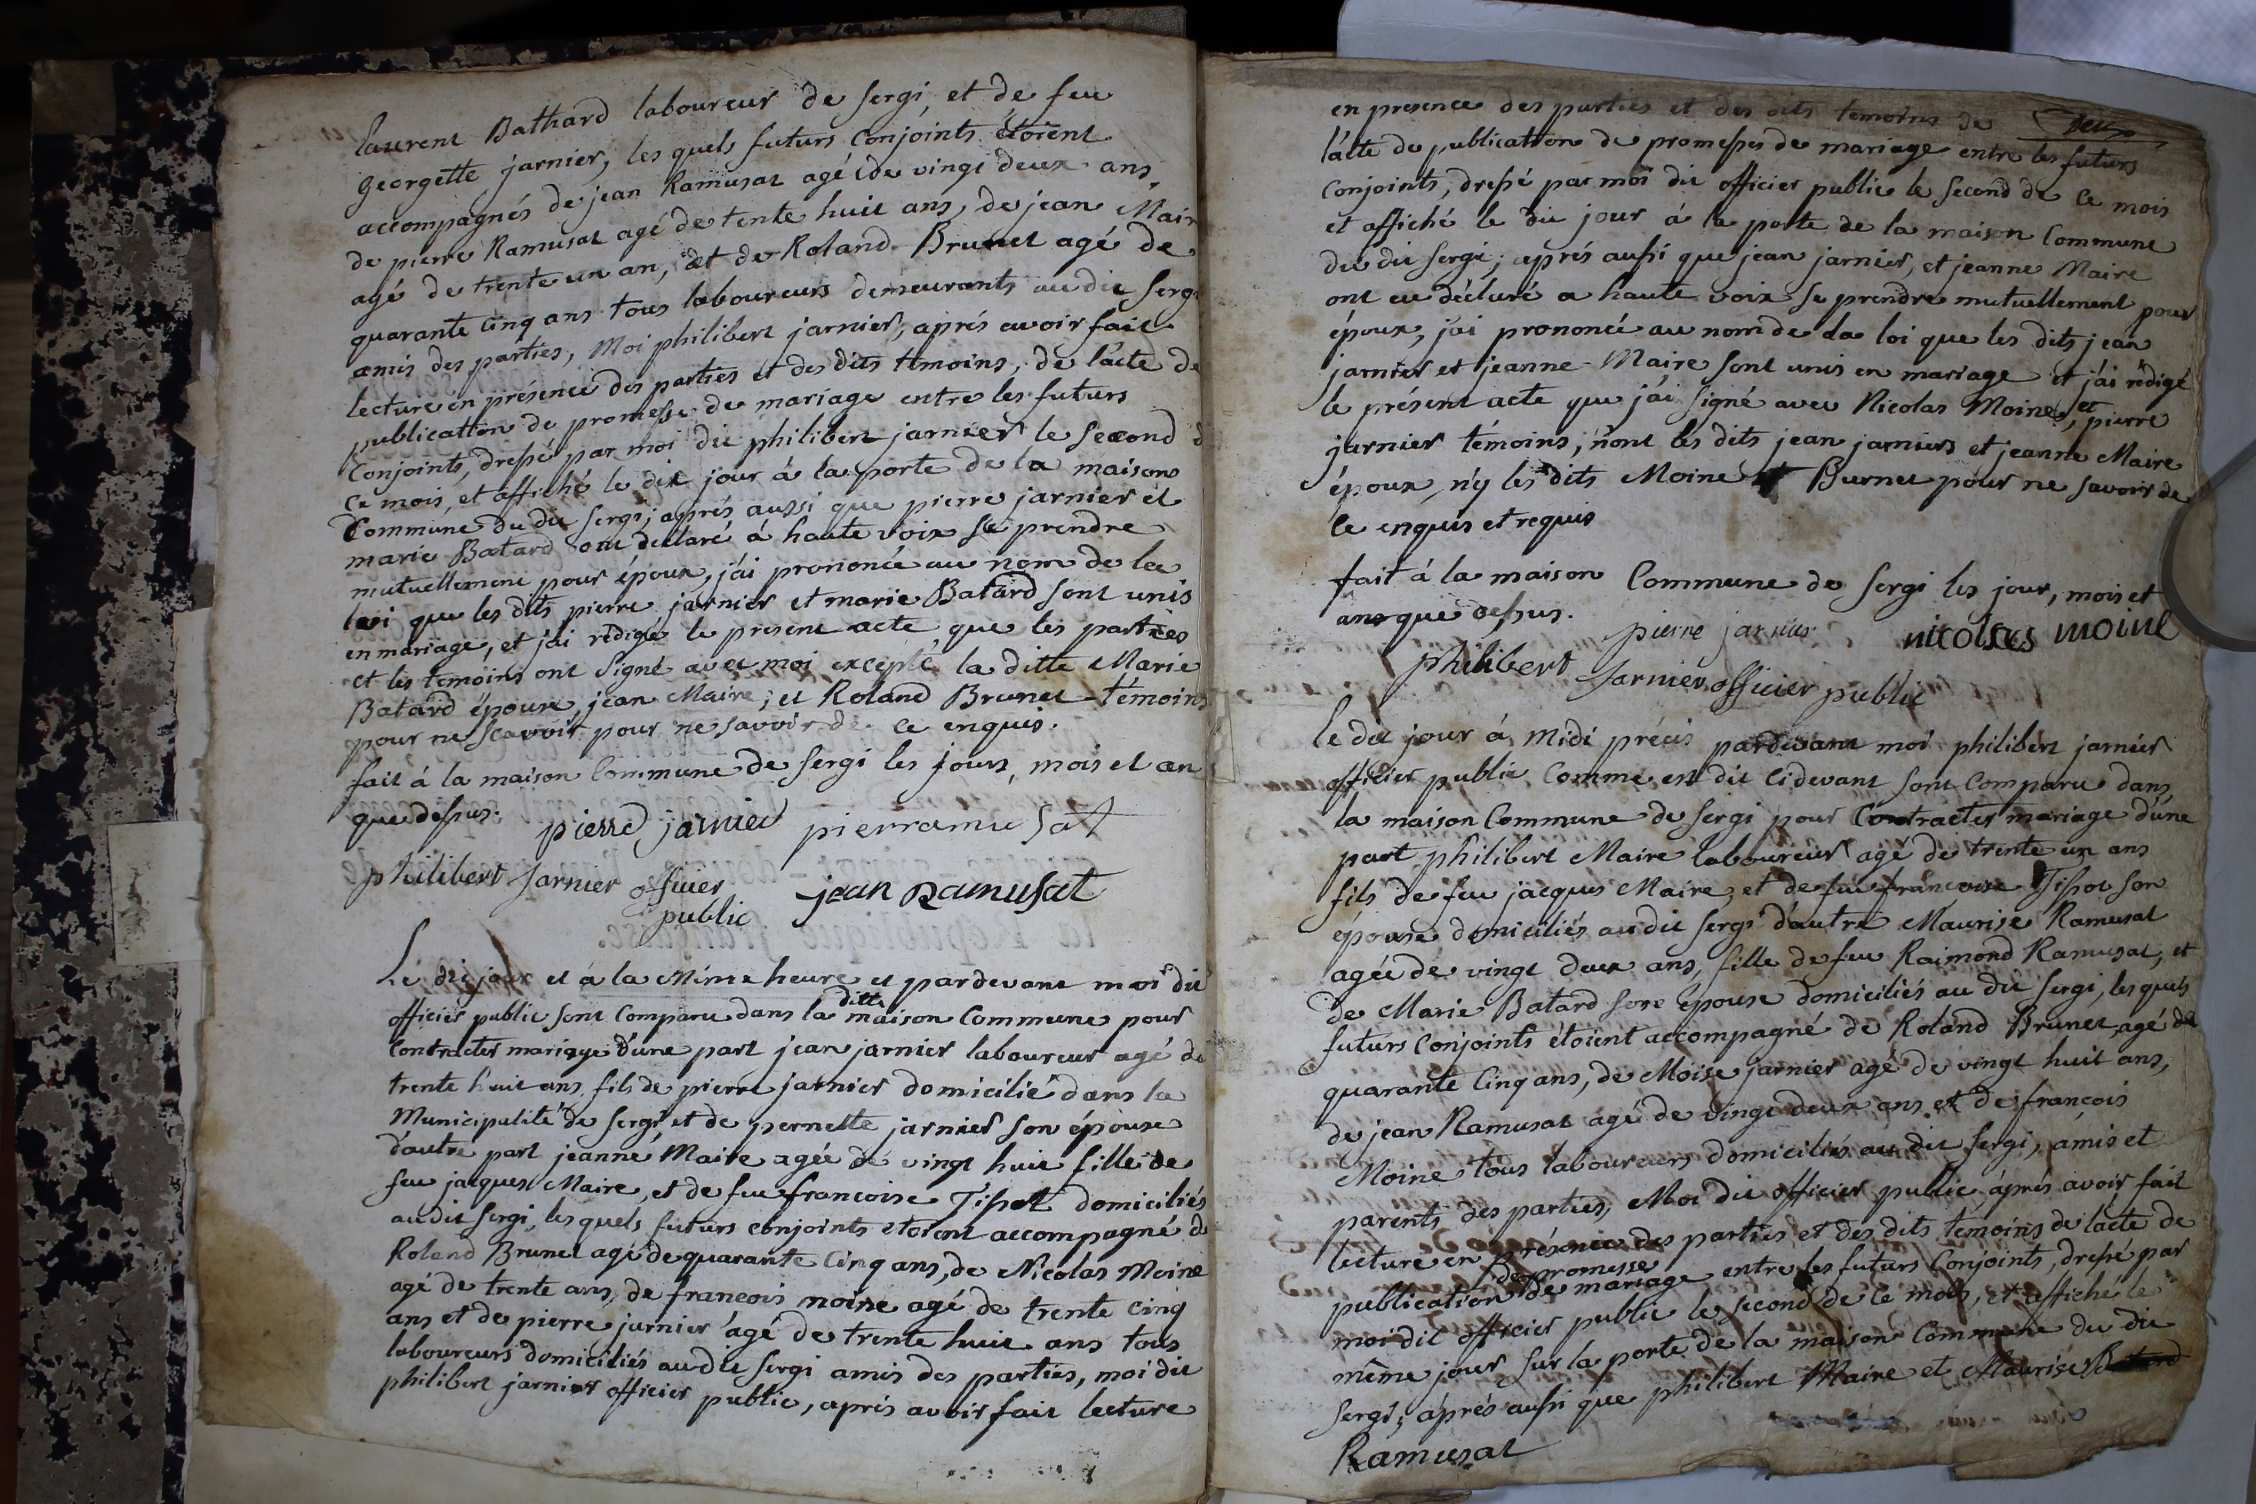 laurent Bathard laboureur de sergi, et de feu
georgette jarnier, les quels futurs conjoints étoient
accompagnés de jean Ramusat agé de vingt deux ans,
de pierre Ramusat agé de tente huit ans, de jean Mair
agé de trente un an, et de Roland Brunet agé de
quarante cinq ans tous laboureurs demeurants au dit Sergi
amis des parties, Moi philibert jarnier, aprés avoir fait
lecture en présence des parties et des dits témoins, de l'acte de
publication de promesse de mariage entre les futurs
Conjoints, dressé par moi dit philibert jarnier le second d
ce mois, et affiché le dit jour á la porte de la maison
Commune du dit sergi; aprés aussi que pierre jarnier et
marie Batard ont declaré á haute voix se prendre
mutuellement pour époux, j'ái prononcé au nom de la
loi que les dits pierre jarnier et marie Batard sont unis
en mariage, et j'ai rédigé le present acte que les parties
et les temoins ont signé avec moi excepté la ditte Marie
Batard épouse, jean Maire, et Roland Brunet témoins
pour ne scavoir pour ne savoir de ce enquis.
fait á la maison Commune de Sergi les jours, mois et an
que dessus. pierre jarnier pierramusat
philibert jarnier officier jean Ramusat
public
Le dit jour et á la Même heure et pardevant moi dit
officier public sont comparu dans la ditte maison Commune pour
Contracter mariage d'une part jean jarnier laboureur agé de
trente huit ans fils de pierre jarnier domicilié dans la
Municipalité de sergi, et de pernette jarnier son épouse
d'autre part jeanne Maire agée de vingt huit fille de
feu jacques Maire, et de feu francoise Tissot domiciliés
au dit sergi, les quels futurs conjoints etoient accompagné de
Roland Brunet agé de quarante cinq ans, de Nicolas Moine
agé de trente ans, de francois moine agé de trente cinq
ans et de pierre jarnier agé de trente huit ans tous
laboureurs domiciliés au dit sergi amis des parties, moi dit
philibert jarnier officier public, aprés avoir fait lecture
en presence des parties et des dits temoins de deux
l'acte de publication de promesses de mariage entre les futurs
Conjoints, dressé par moi dit officier public le second de ce mois
et affiché le dit jour á la porte de la maison Commune
du dit sergi; aprés aussi que jean jarnier, et jeanne Maire
ont eu déclaré a haute voix se prendre mutuellement pour
époux, j'ai prononcé au nom de la loi que les dits jean
jarnier et jeanne Maire sont unis en mariage et j'ai rédigé
le présent acte que j'ai signé avec Nicolas Moine, et pierre
jarnier témoins, n'ont les dits jean jarniers et jeanne Maire
époux, n'y les dits Moine et Burnet pour ne savoir de
ce enquis et requis
fait á la maison Commune de Sergi les jour, mois et
ans que dessus.
pierre jarnier nicolas moine
philibert jarnier officier public
Le dit jour á midi précis pardevant moi philibert jarnier
officier public comme est dit cidevant sont comparu dans
la maison Commune de Sergi pour Contracter mariage d'une
part philibert Maire laboureur agé de trente un ans
fils de feu jacques Maire, et de feu francoise Tissot son
épouse domiciliés au dit sergi d'autre Maurise Ramusat
agée de vingt deux ans, fille de feu Raimond Ramusat, et
de Marie Batard sone épouse domiciliés au dit sergi, les quels
futurs conjoints étoient accompagné de Roland Brunet, agé de
quarante cinq ans, de Moise jarnier agé de vingt huit ans,
de jean Ramusat agé de vingt deux ans et de françois
Moine tous laboureurs domiciliés au dit sergi, amis et
parents des parties, Moi dit officier public aprés avoir fait
lecture en présence des parties et des dits témoins de l'acte de
publication de promesse de mariage entre les futurs Conjoints, dressé par
moi dit officier public le second de ce mois, et affiché le
même jour sur la porte de la maison Commune du dit
Sergi; áprés aussi que philibert Maire et Maurise Batard
Ramusat